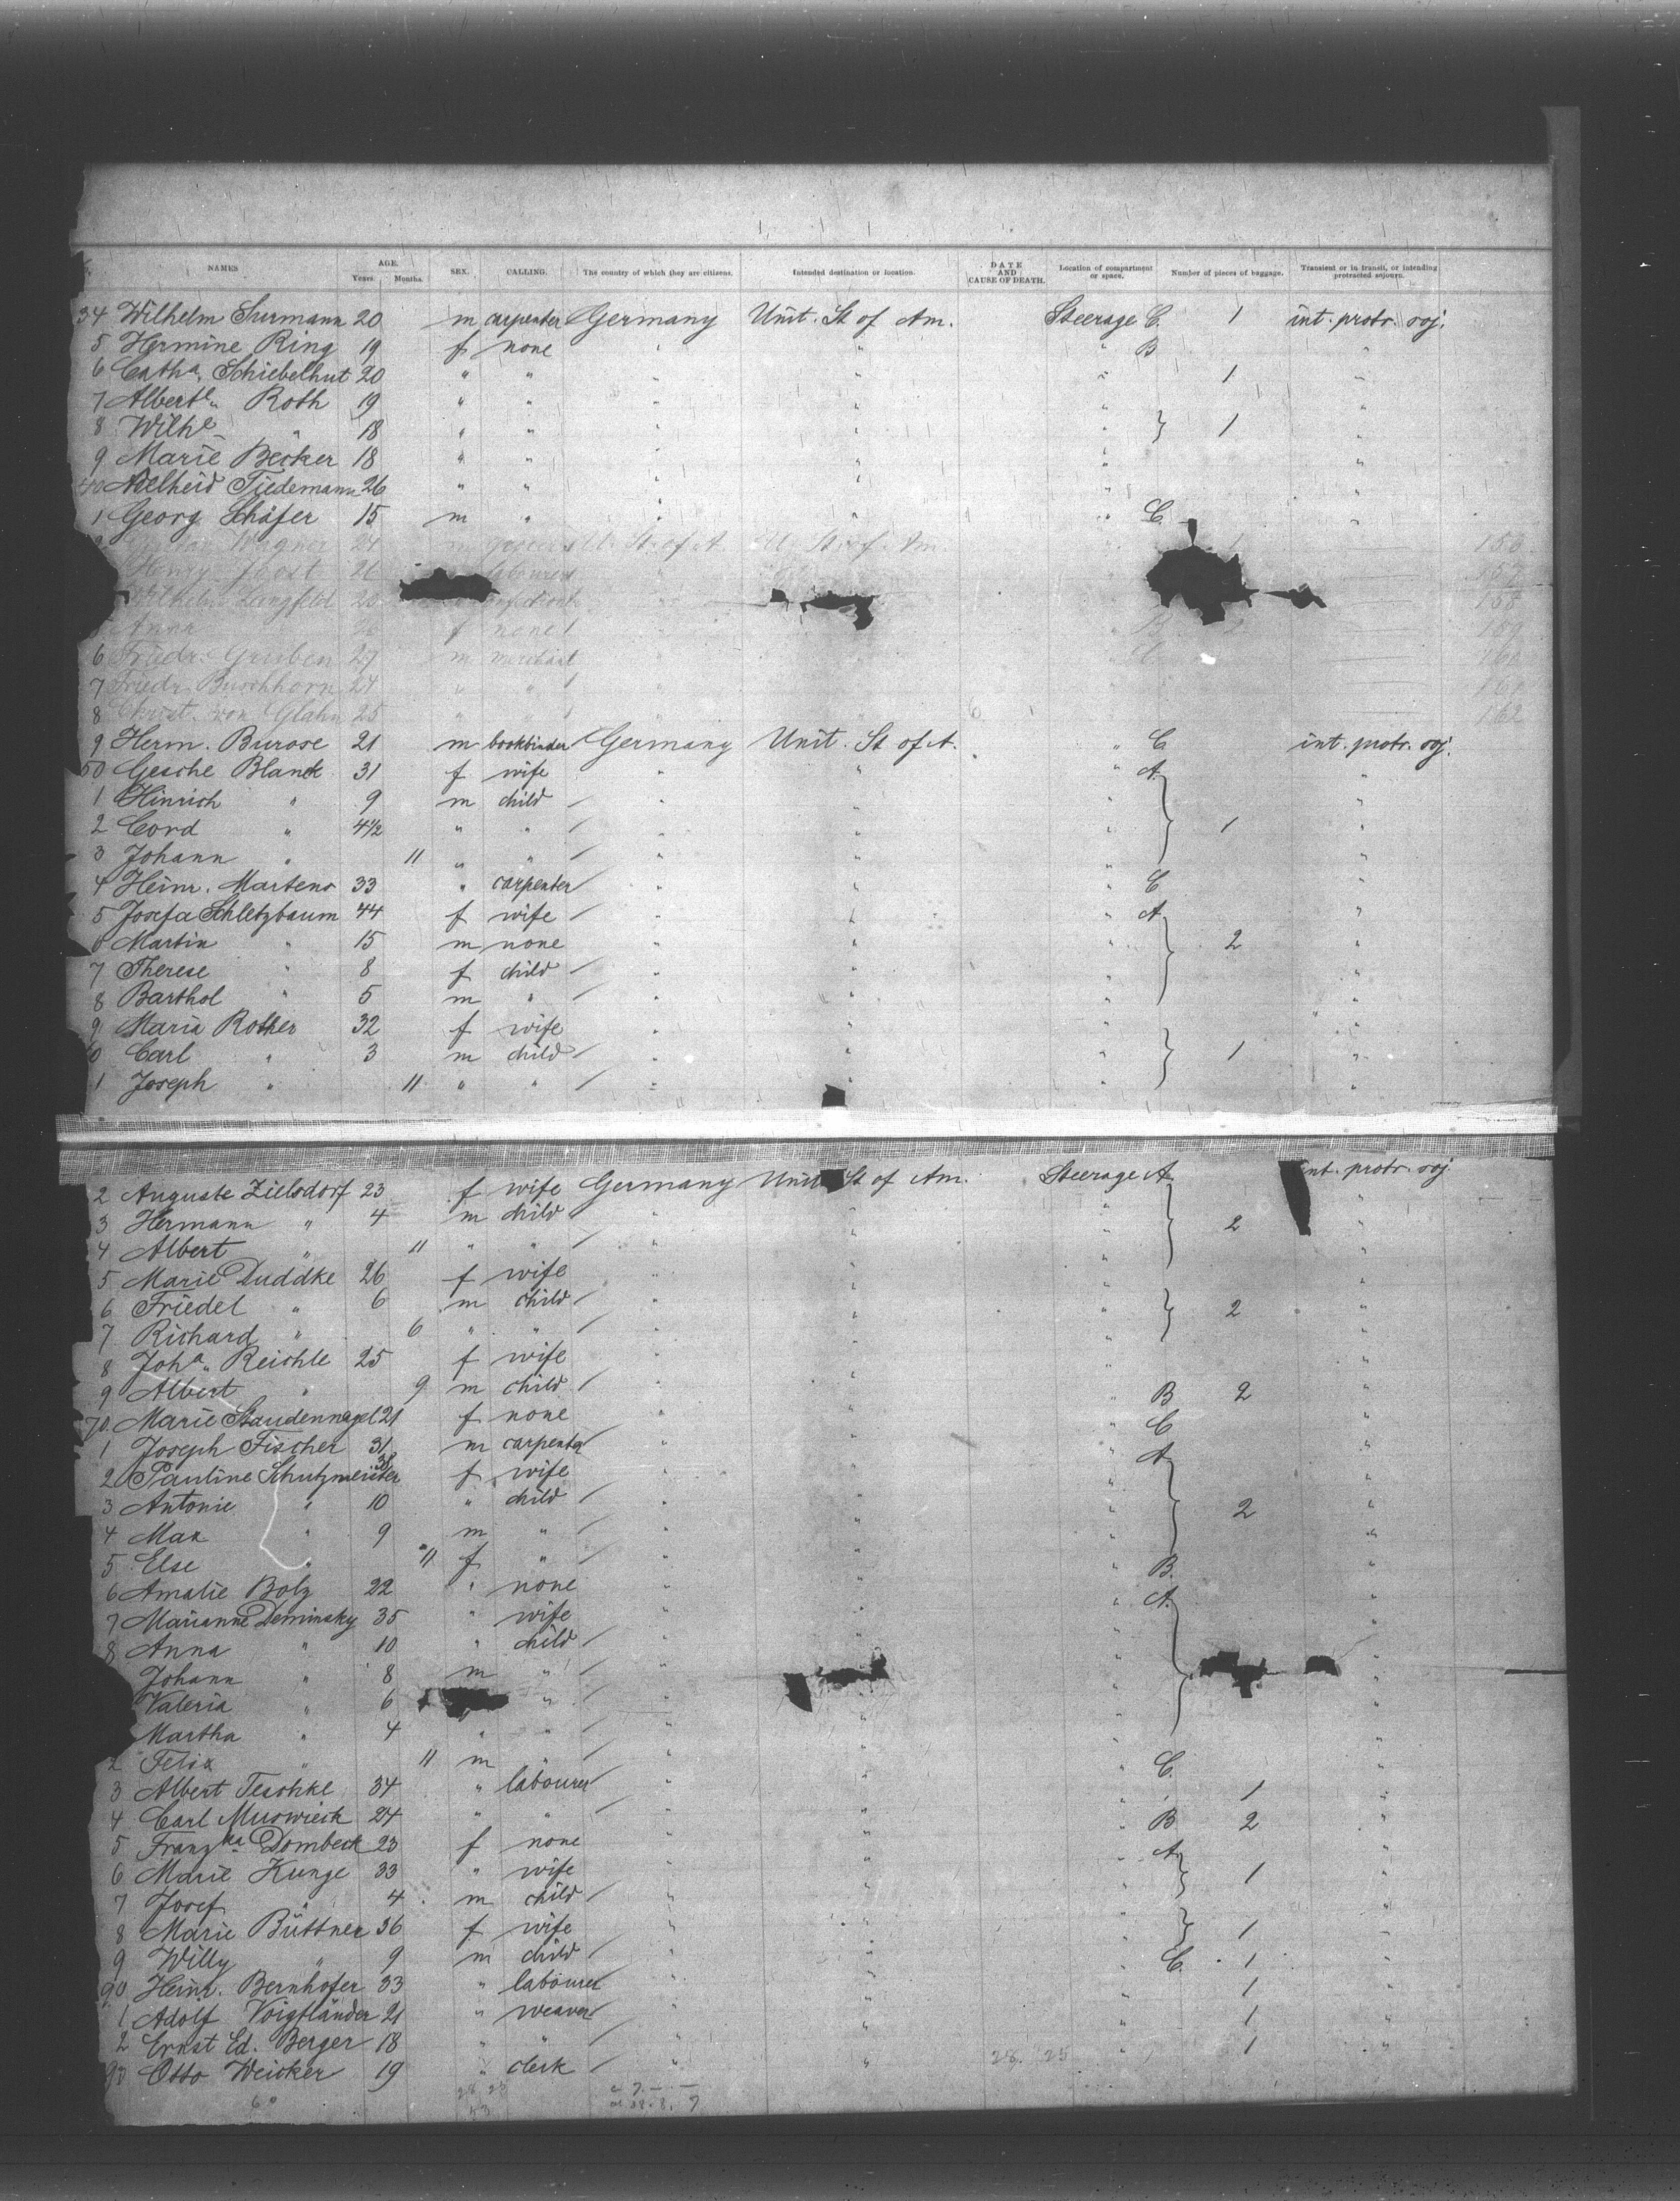 NAMES AGE. Years. Months. SEX. CALLING. The country of which they are citizens. Intended destination or location. DATE AND CAUSE OF DEATH. Location of compartment or space. Number of pieces of baggage. Transient or in transit, or intending protracted sojourn.
34 Wilhelm Surmann 20 m carpenter Germany Unit. St of Am. Steerage C. 1 int. protr. soj.
5 Hermine Ring 19 f none " " " B "
6 Catha. Schiebelhut 20 " " " " " 1 "
7 Alberte. Roth 19 " " " " " "
8 Wilhe " 18 " " " " " 1 "
9 Marie Becker 18 " " " " " "
40 Adelheid Tiedemann 26 " " " " " "
1 Georg Schäfer 15 m " " " " C. "
Wagner 24 m U. St. of A. U. St. of Am. 156
Henry Joost 26 labourer 157
Wilhelm Lengfeld 158
Anna f none B 2 159
6 Friedr. Gruben 27 m merchant " C. 160
7 Friedr. Buschhorn 24 " " " 161
8 Christ. von Glahn 25 " " " 162
9 Herm. Burose 21 m bookbinder Germany Unit. St of A. " C int. protr. soj.
50 Gesche Blanck 31 f wife " " " A. "
1 Hinrich " 9 m child " " " "
2 Cord " 4½ " " " " " 1 "
3 Johann " 11 " " " " " "
4 Heinr. Martens 33 " carpenter " " " C "
5 Josefa Schletzbaum 44 f wife " " " A. "
6 Martin " 15 m none " " " 2 "
7 Therese " 8 f child " " " "
8 Barthol " 5 m " " " " "
9 Maria Rother 32 f wife " " " "
60 Carl " 3 m child " " " 1 "
1 Joseph " 11 " " " " " "
2 Auguste Zielsdorf 23 f wife Germany Unit. St of Am. Steerage A. int. protr. soj.
3 Hermann " 4 m child " " " 2 "
4 Albert " 11 " " " " " "
5 Marie Duddke 26 f wife " " " "
6 Friedel " 6 m child " " " 2 "
7 Richard " 6 " " " " " "
8 Joha. Reichle 25 f wife " " " "
9 Albert " 9 m child " " " "
70 Marie Staudennagel 21 f none " " " B 2 "
1 Joseph Fischer 31 m carpenter " " " C "
2 Pauline Schutzmeister 38 f wife " " " A "
3 Antonie " 10 " child " " " 2 "
4 Max " 9 m " " " " "
5 Else " 11 f " " " " "
6 Amalie Bolz 22 " none " " " B. "
7 Marianne Deminsky 35 " wife " " " A. "
8 Anna " 10 " child " " " "
Johann " 8 m " " " " "
Valeria " 6 " " " " "
Martha " 4 " " " " " "
2 Felix " 11 m " " " " "
3 Albert Teschke 34 " labourer " " " C. 1 "
4 Carl Muswieck 24 " " " " " "
5 Franzka. Dombeck 23 f none " " " B 2 "
6 Marie Kunze 33 " wife " " " A 1 "
7 Josef " 4 m child " " " "
8 Marie Büttner 36 f wife " " " 1 "
9 Willy " 9 m child " " " "
90 Heinr. Bernhofer 33 " labourer " " " C. 1 "
1 Adolf Voigtländer 21 " weaver " " " 1 "
2 Ernst Ed. Berger 18 " " " " " 1 "
93 Otto Weicker 19 " clerk " " 28. 25 " 1 "